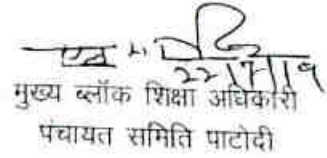 22/7/19
मुख्य ब्लॉक शिक्षा अधिकारी
पंचायत समिति पाटोदी